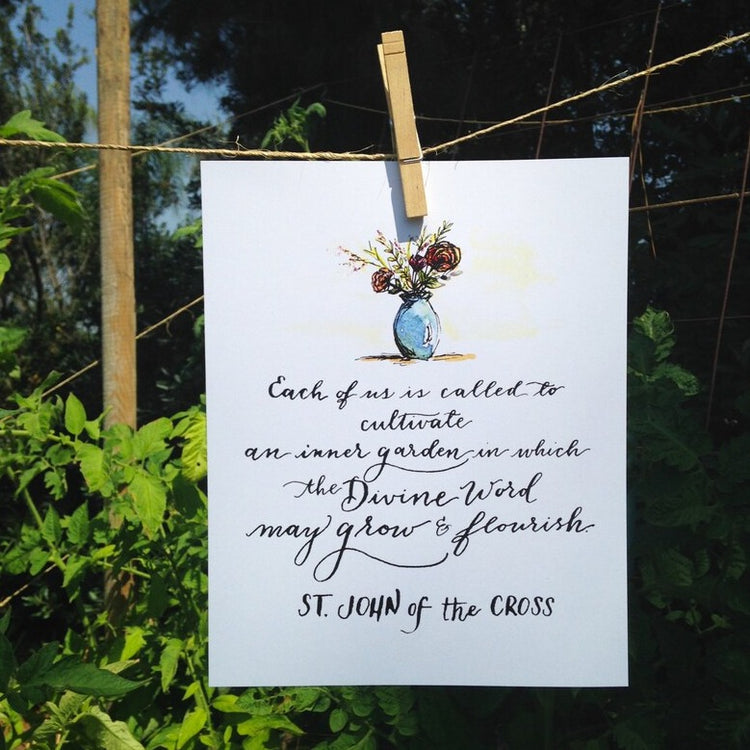 Each of us is called to
cultivate
an inner garden in which
the Divine Word
may grow & flourish.
ST. JOHN of the CROSS